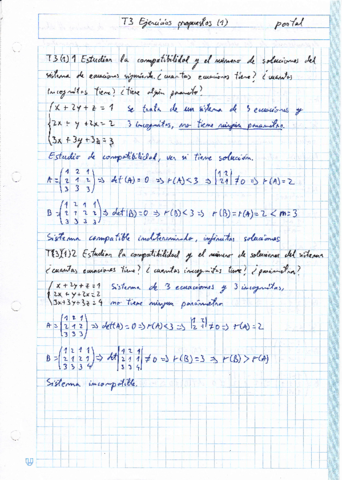 T3 Ejercicios propuestos (1) portal
T3(1)1 Estudiar la compatibilidad y el número de soluciones del
sistema de ecuaciones siguiente ¿cuantas ecuaciones tiene? ¿cuantas
incognitas tiene? ¿tiene algún parametro?
x + 2y + z = 1 Se trata de un sistema de 3 ecuaciones y
2x + y + 2x = 2 3 incognitas, no tiene ningún parametro.
3x + 3y + 3z = 3
Estudio de compatibilidad, ver si tiene solución.
A = (1 2 1 / 2 1 2 / 3 3 3) => det(A) = 0 => r(A) < 3 => |1 2 / 2 1| ≠ 0 => r(A) = 2
B = (1 2 1 1 / 2 1 2 2 / 3 3 3 3) => det(B) = 0 => r(B) < 3 => r(B) = r(A) = 2 < m = 3
Sistema compatible indeterminado, infinitas soluciones
T3(1)2 Estudiar la compatibilidad y el número de soluciones del sistema
¿cuantas ecuaciones tiene? ¿cuantas incognitas tiene? ¿parametro?
x + 2y + z = 1 Sistema de 3 ecuaciones y 3 incognitas,
2x + y + 2x = 2 no tiene ningún parametro
3x + 3y + 3z = 4
A = (1 2 1 / 2 1 2 / 3 3 3) => det(A) = 0 => r(A) < 3 => |1 2 / 2 1| ≠ 0 => r(A) = 2
B = (1 2 1 1 / 2 1 2 1 / 3 3 3 4) => det |1 2 1 / 2 1 1 / 3 3 4| ≠ 0 => r(B) = 3 => r(B) > r(A)
Sistema incompatible.